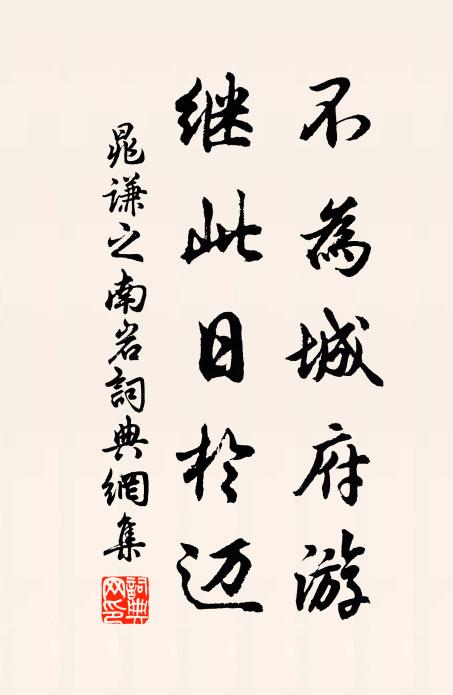 不為城府游
继此日於迈
晁谦之南岩詞典網集
詞典网印